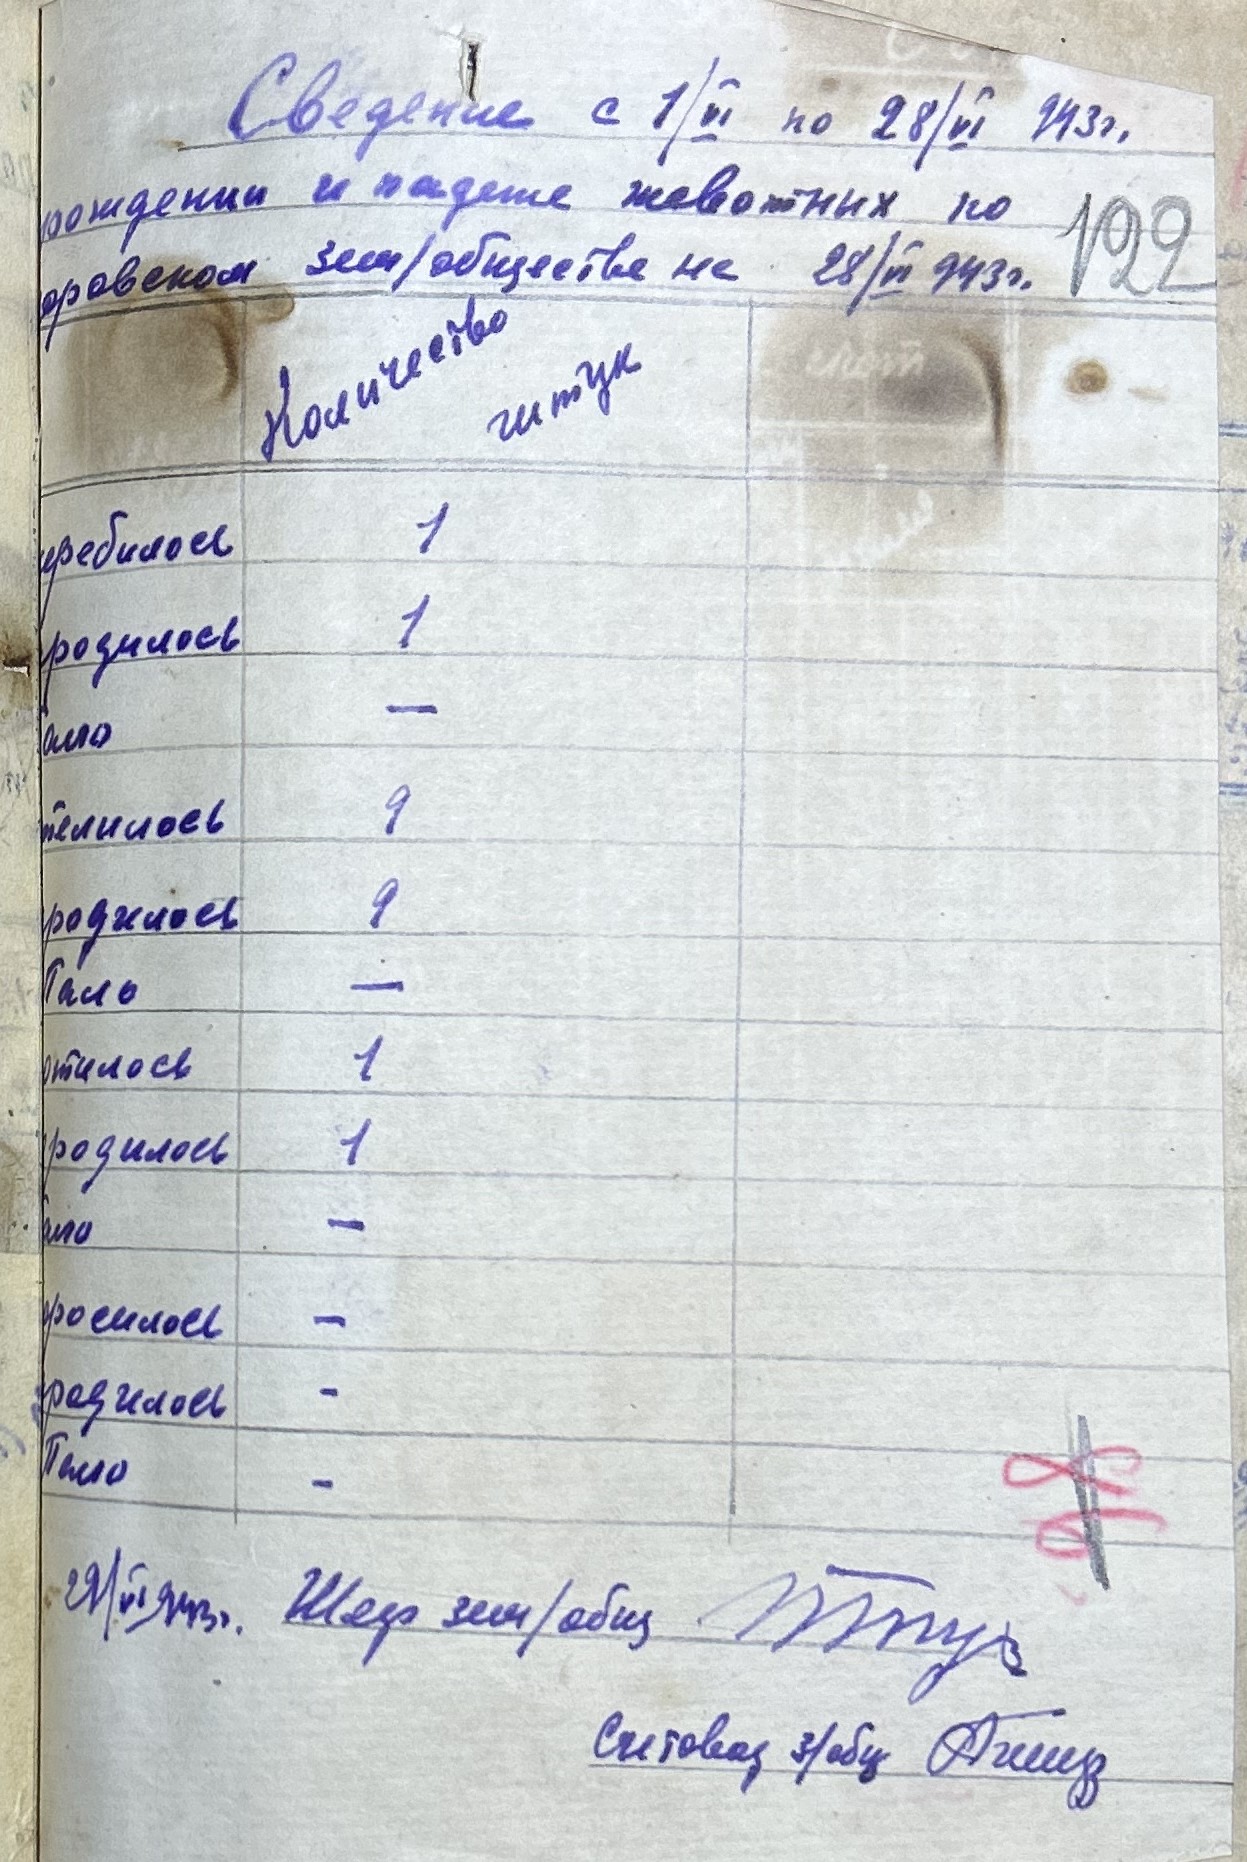 Сведение с 1/VI по 28/VI 943г.
рождении и падеже животных по
оровском зем/обществе на 28/VI 943г.
122
Количество
штук
еребилось 1
родилось 1
ало —
телилось 9
родилось 9
Пало —
отилось 1
родилось 1
ало —
росилось —
родилось -
Пало -
29/VI 943г. зем/общ
Счетовод з/общ